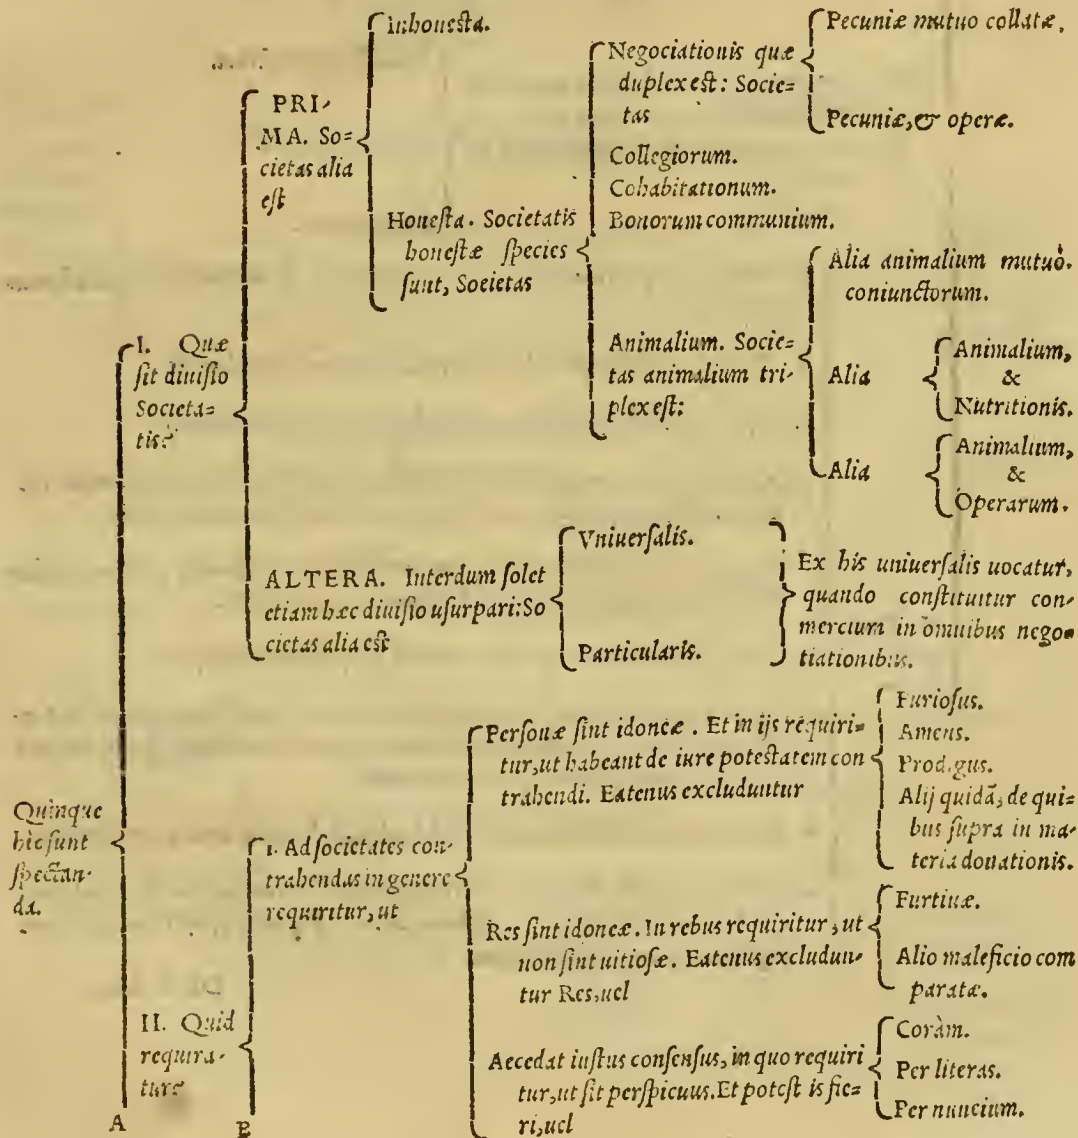 Quinque
hîc sunt
spectan-
da.
I. Quæ
sit diuisio
Societa=
tis?
PRI-
MA. So=
cietas alia
est
Inhonesta.
Honesta. Societatis
honestæ species
sunt, Societas
Negociationis quæ
duplex est: Socie=
tas
Pecuniæ mutuo collatæ.
Pecuniæ, & operæ.
Collegiorum.
Cohabitationum.
Bonorum communium.
Animalium. Socie=
tas animalium tri-
plex est:
Alia animalium mutuò
coniunctorum.
Alia
Animalium,
&
Nutritionis.
Alia
Animalium,
&
Operarum.
ALTERA. Interdum solet
etiam hæc diuisio usurpari: So
cietas alia est
Vniuersalis.
Particularis.
Ex his uniuersalis uocatur,
quando constituitur con-
mercium in omnibus nego-
tiationibus.
II. Quid
requira-
tur?
1. Ad societates con-
trahendas in genere
requiritur, ut
Personæ sint idoneæ. Et in ijs requiri=
tur, ut habeant de iure potestatem con
trahendi. Eatenus excluduntur
Furiosus.
Amens.
Prodigus.
Alij quidã, de qui-
bus supra in ma-
teria donationis.
Res sint idoneæ. In rebus requiritur, ut
non sint uitiosæ. Eatenus excludun-
tur Res, uel
Furtiuæ.
Alio maleficio com
paratæ.
Accedat iustus consensus, in quo requiri
tur, ut sit perspicuus. Et potest is fie=
ri, uel
Coràm.
Per literas.
Per nuncium.
A B